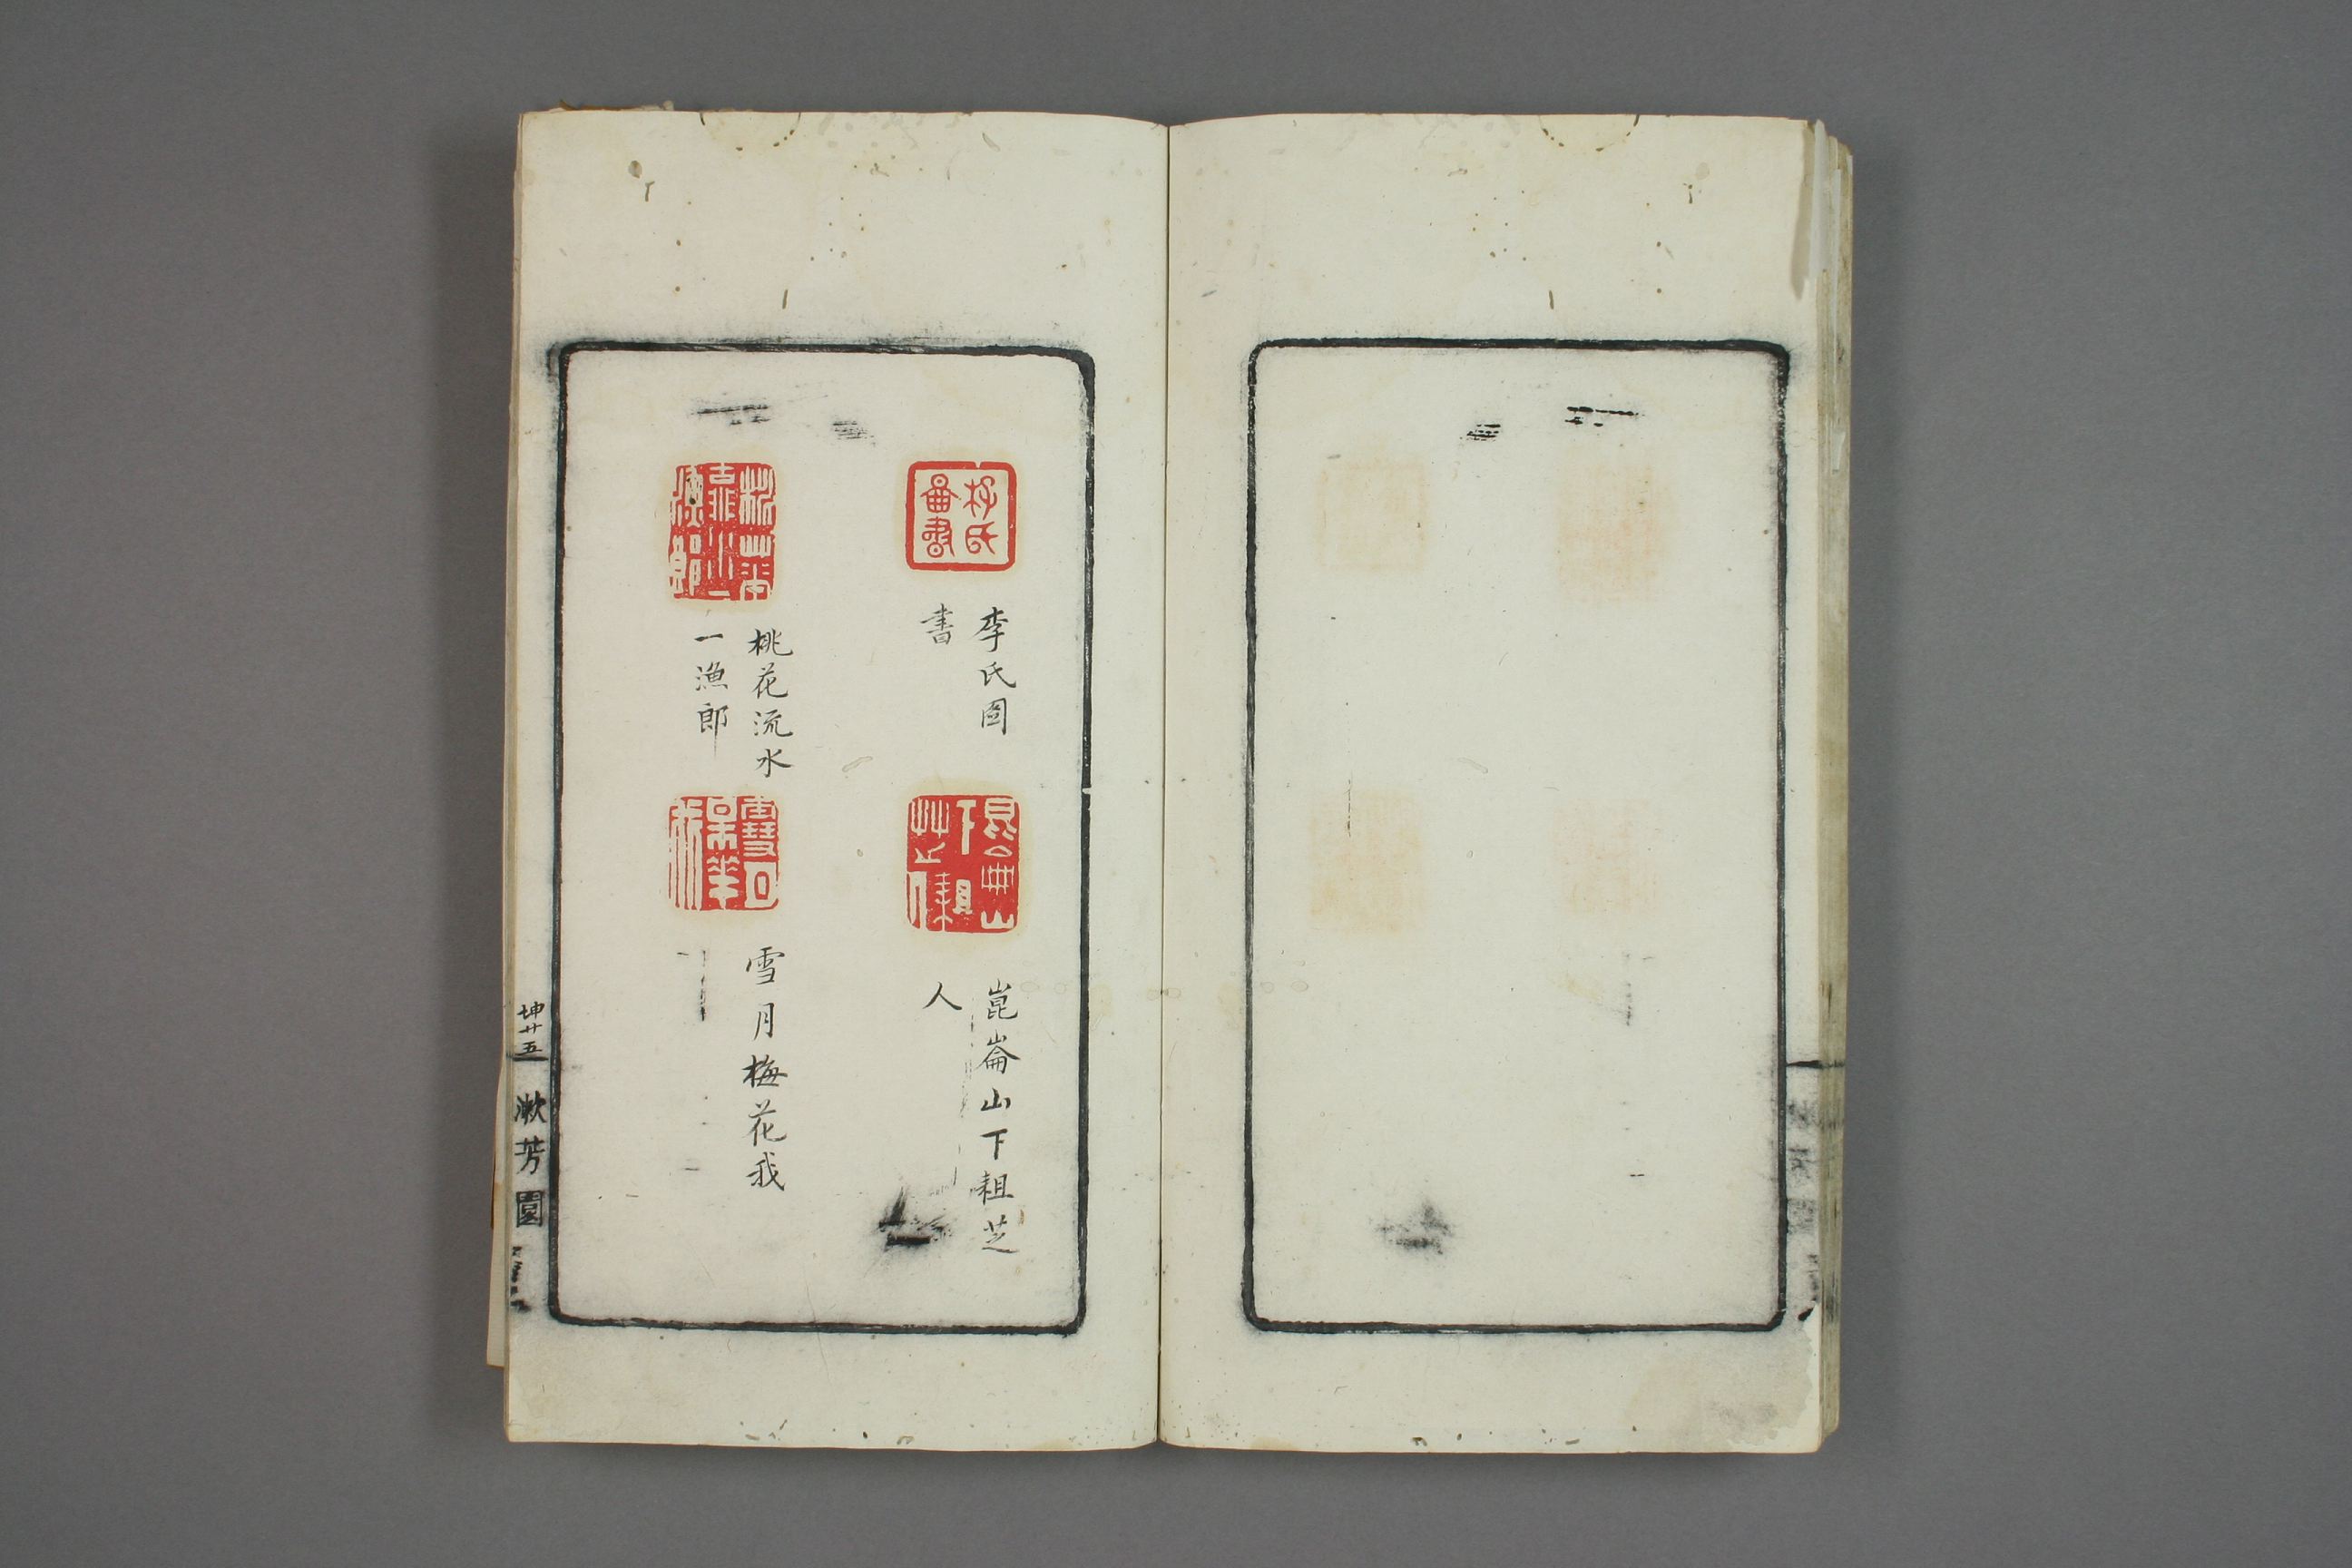 李氏圖書
李氏图
書
崑崙山下耡芝
人
桃花流水
一漁郎
雪月梅花我
坤廿五
漱芳園